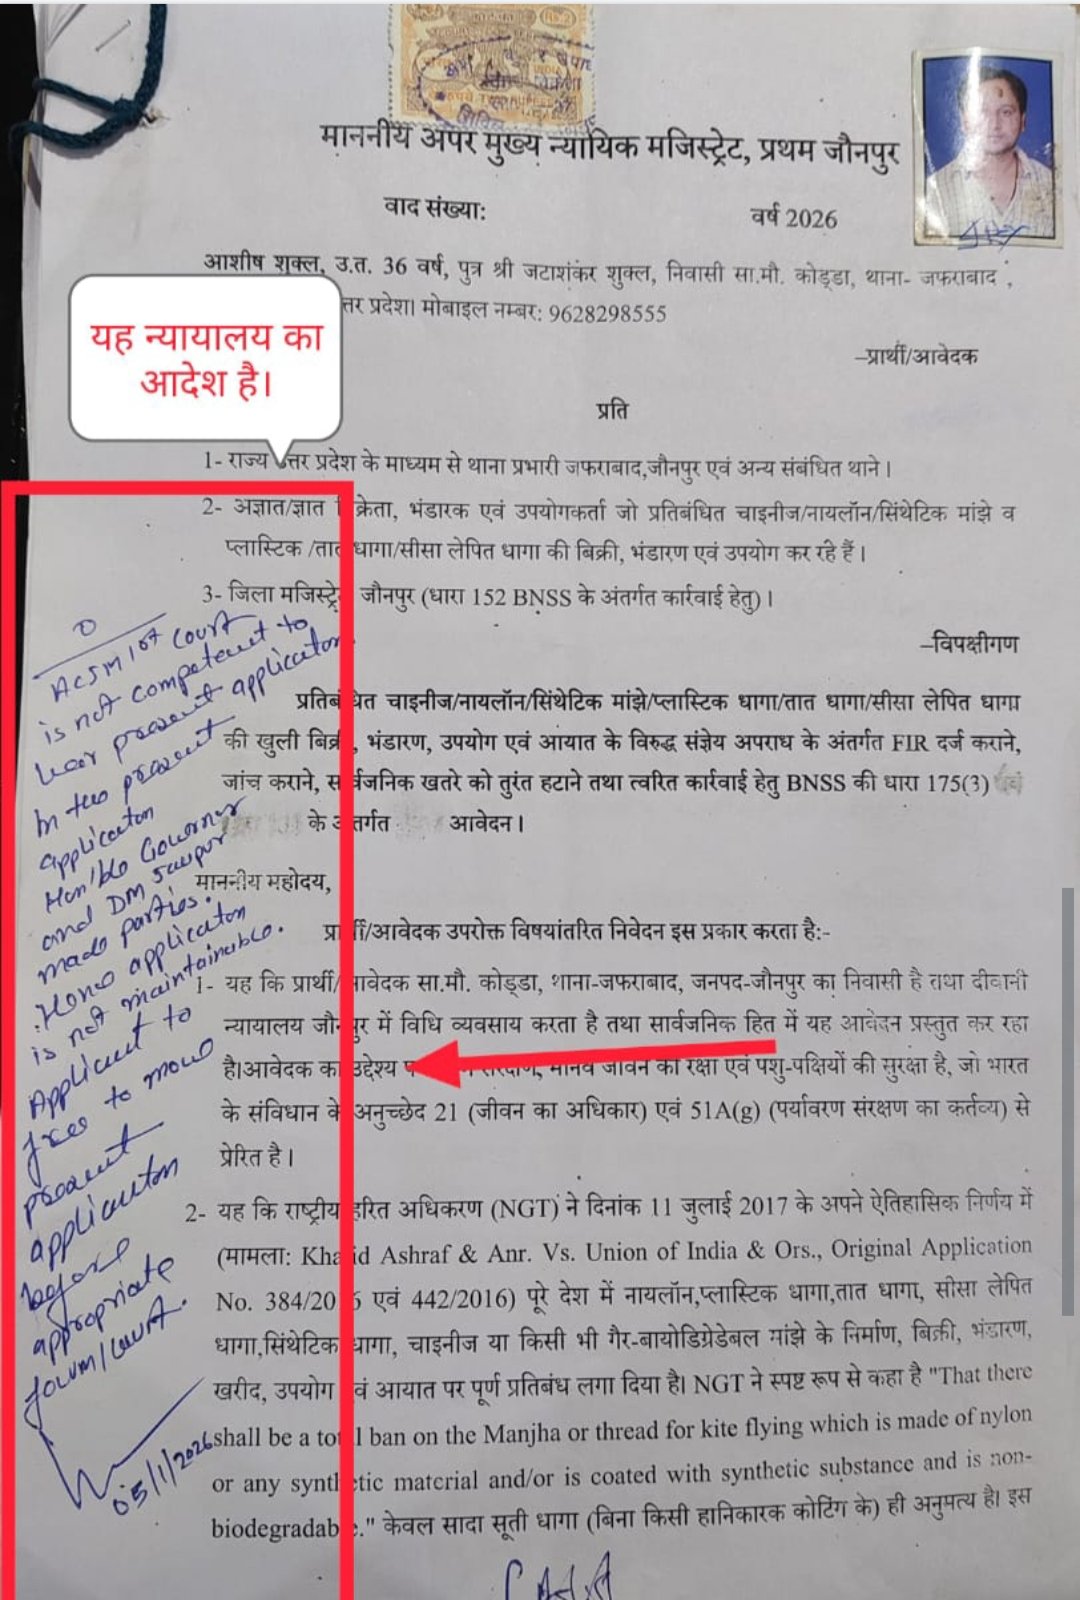 माननीय अपर मुख्य न्यायिक मजिस्ट्रेट, प्रथम जौनपुर
वाद संख्या:
वर्ष 2026
आशीष शुक्ल, उ.त. 36 वर्ष, पुत्र श्री जटाशंकर शुक्ल, निवासी सा.मौ. कोड्डा, थाना- जफराबाद ,
त्तर प्रदेश। मोबाइल नम्बर: 9628298555
यह न्यायालय का
आदेश है।
–प्रार्थी/आवेदक
प्रति
1- राज्य उत्तर प्रदेश के माध्यम से थाना प्रभारी जफराबाद,जौनपुर एवं अन्य संबंधित थाने।
2- अज्ञात/ज्ञात क्रेता, भंडारक एवं उपयोगकर्ता जो प्रतिबंधित चाइनीज/नायलॉन/सिंथेटिक मांझे व
प्लास्टिक /तात धागा/सीसा लेपित धागा की बिक्री, भंडारण एवं उपयोग कर रहे हैं।
3- जिला मजिस्ट्रेट जौनपुर (धारा 152 BNSS के अंतर्गत कार्रवाई हेतु)।
–विपक्षीगण
प्रतिबंधित चाइनीज/नायलॉन/सिंथेटिक मांझे/प्लास्टिक धागा/तात धागा/सीसा लेपित धागा
की खुली बिक्री, भंडारण, उपयोग एवं आयात के विरुद्ध संज्ञेय अपराध के अंतर्गत FIR दर्ज कराने,
जांच कराने, सार्वजनिक खतरे को तुरंत हटाने तथा त्वरित कार्रवाई हेतु BNSS की धारा 175(3) एवं
के अंतर्गत आवेदन।
माननीय महोदय,
प्रार्थी/आवेदक उपरोक्त विषयांतरित निवेदन इस प्रकार करता है:-
1- यह कि प्रार्थी/आवेदक सा.मौ. कोड्डा, थाना-जफराबाद, जनपद-जौनपुर का निवासी है तथा दीवानी
न्यायालय जौनपुर में विधि व्यवसाय करता है तथा सार्वजनिक हित में यह आवेदन प्रस्तुत कर रहा
है।आवेदक का उद्देश्य संरक्षण, मानव जीवन की रक्षा एवं पशु-पक्षियों की सुरक्षा है, जो भारत
के संविधान के अनुच्छेद 21 (जीवन का अधिकार) एवं 51A(g) (पर्यावरण संरक्षण का कर्तव्य) से
प्रेरित है।
2- यह कि राष्ट्रीय हरित अधिकरण (NGT) ने दिनांक 11 जुलाई 2017 के अपने ऐतिहासिक निर्णय में
(मामला: Khalid Ashraf & Anr. Vs. Union of India & Ors., Original Application
No. 384/2016 एवं 442/2016) पूरे देश में नायलॉन,प्लास्टिक धागा,तात धागा, सीसा लेपित
धागा,सिंथेटिक धागा, चाइनीज या किसी भी गैर-बायोडिग्रेडेबल मांझे के निर्माण, बिक्री, भंडारण,
खरीद, उपयोग एवं आयात पर पूर्ण प्रतिबंध लगा दिया है। NGT ने स्पष्ट रूप से कहा है "That there
shall be a total ban on the Manjha or thread for kite flying which is made of nylon
or any synthetic material and/or is coated with synthetic substance and is non-
biodegradable." केवल सादा सूती धागा (बिना किसी हानिकारक कोटिंग के) ही अनुमत्य है। इस
ACJM 1st Court
is not competent to
hear present application
In the present
application
Hon'ble Governor
and DM Jaunpur
made parties.
Hence application
is not maintainable.
Applicant to
free to move
present
application
before
appropriate
forum/court.
05/1/2026